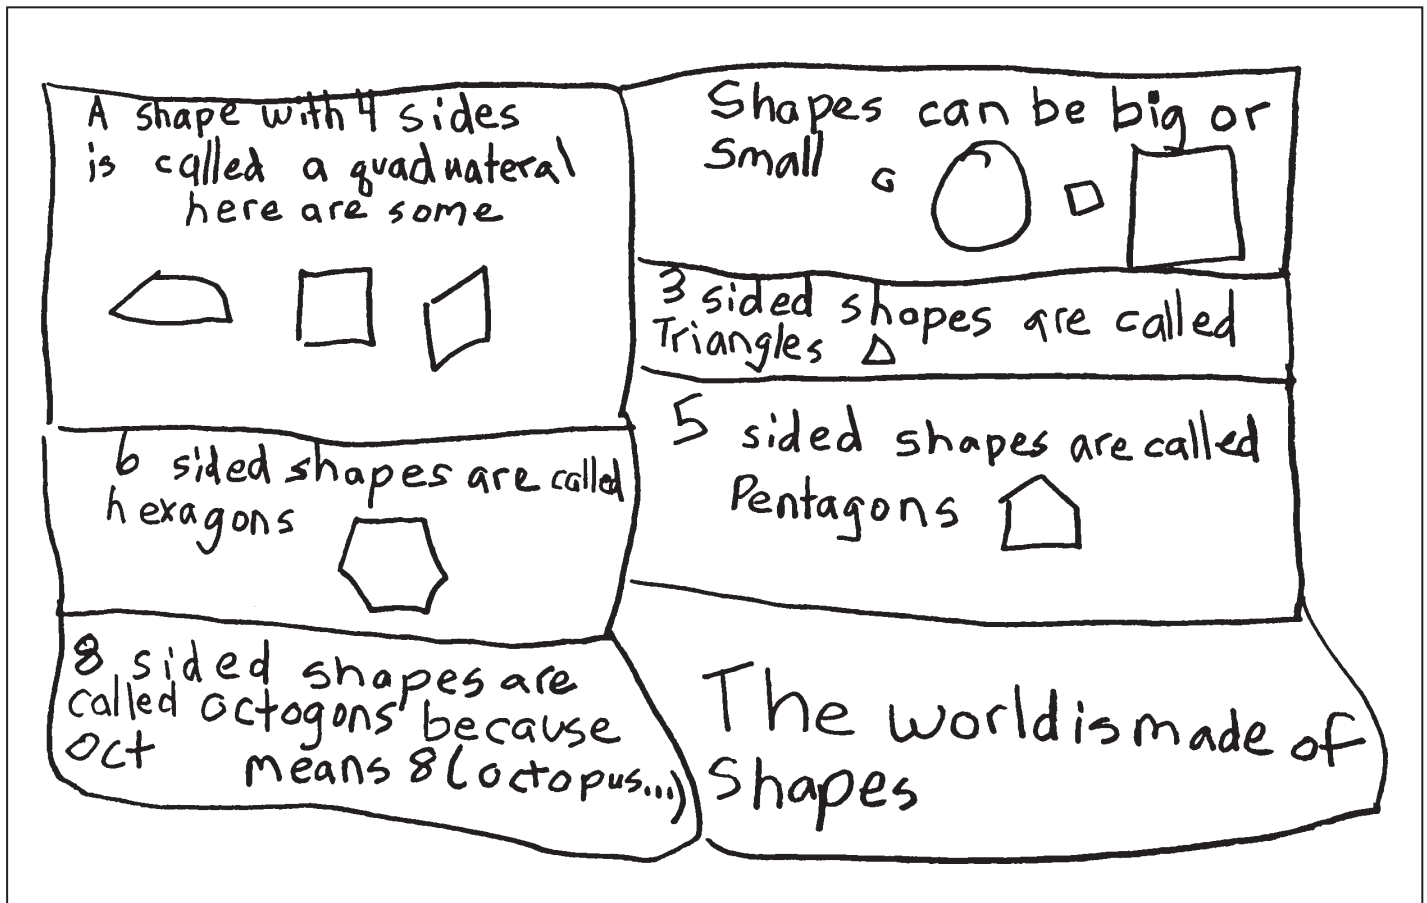 A shape with 4 sides
is called a quadnateral
here are some
6 sided shapes are called
hexagons
8 sided shapes are
called octogons because
oct means 8 (octopus...)
Shapes can be big or
small
3 sided shapes are called
Triangles
5 sided shapes are called
Pentagons
The world is made of
Shapes